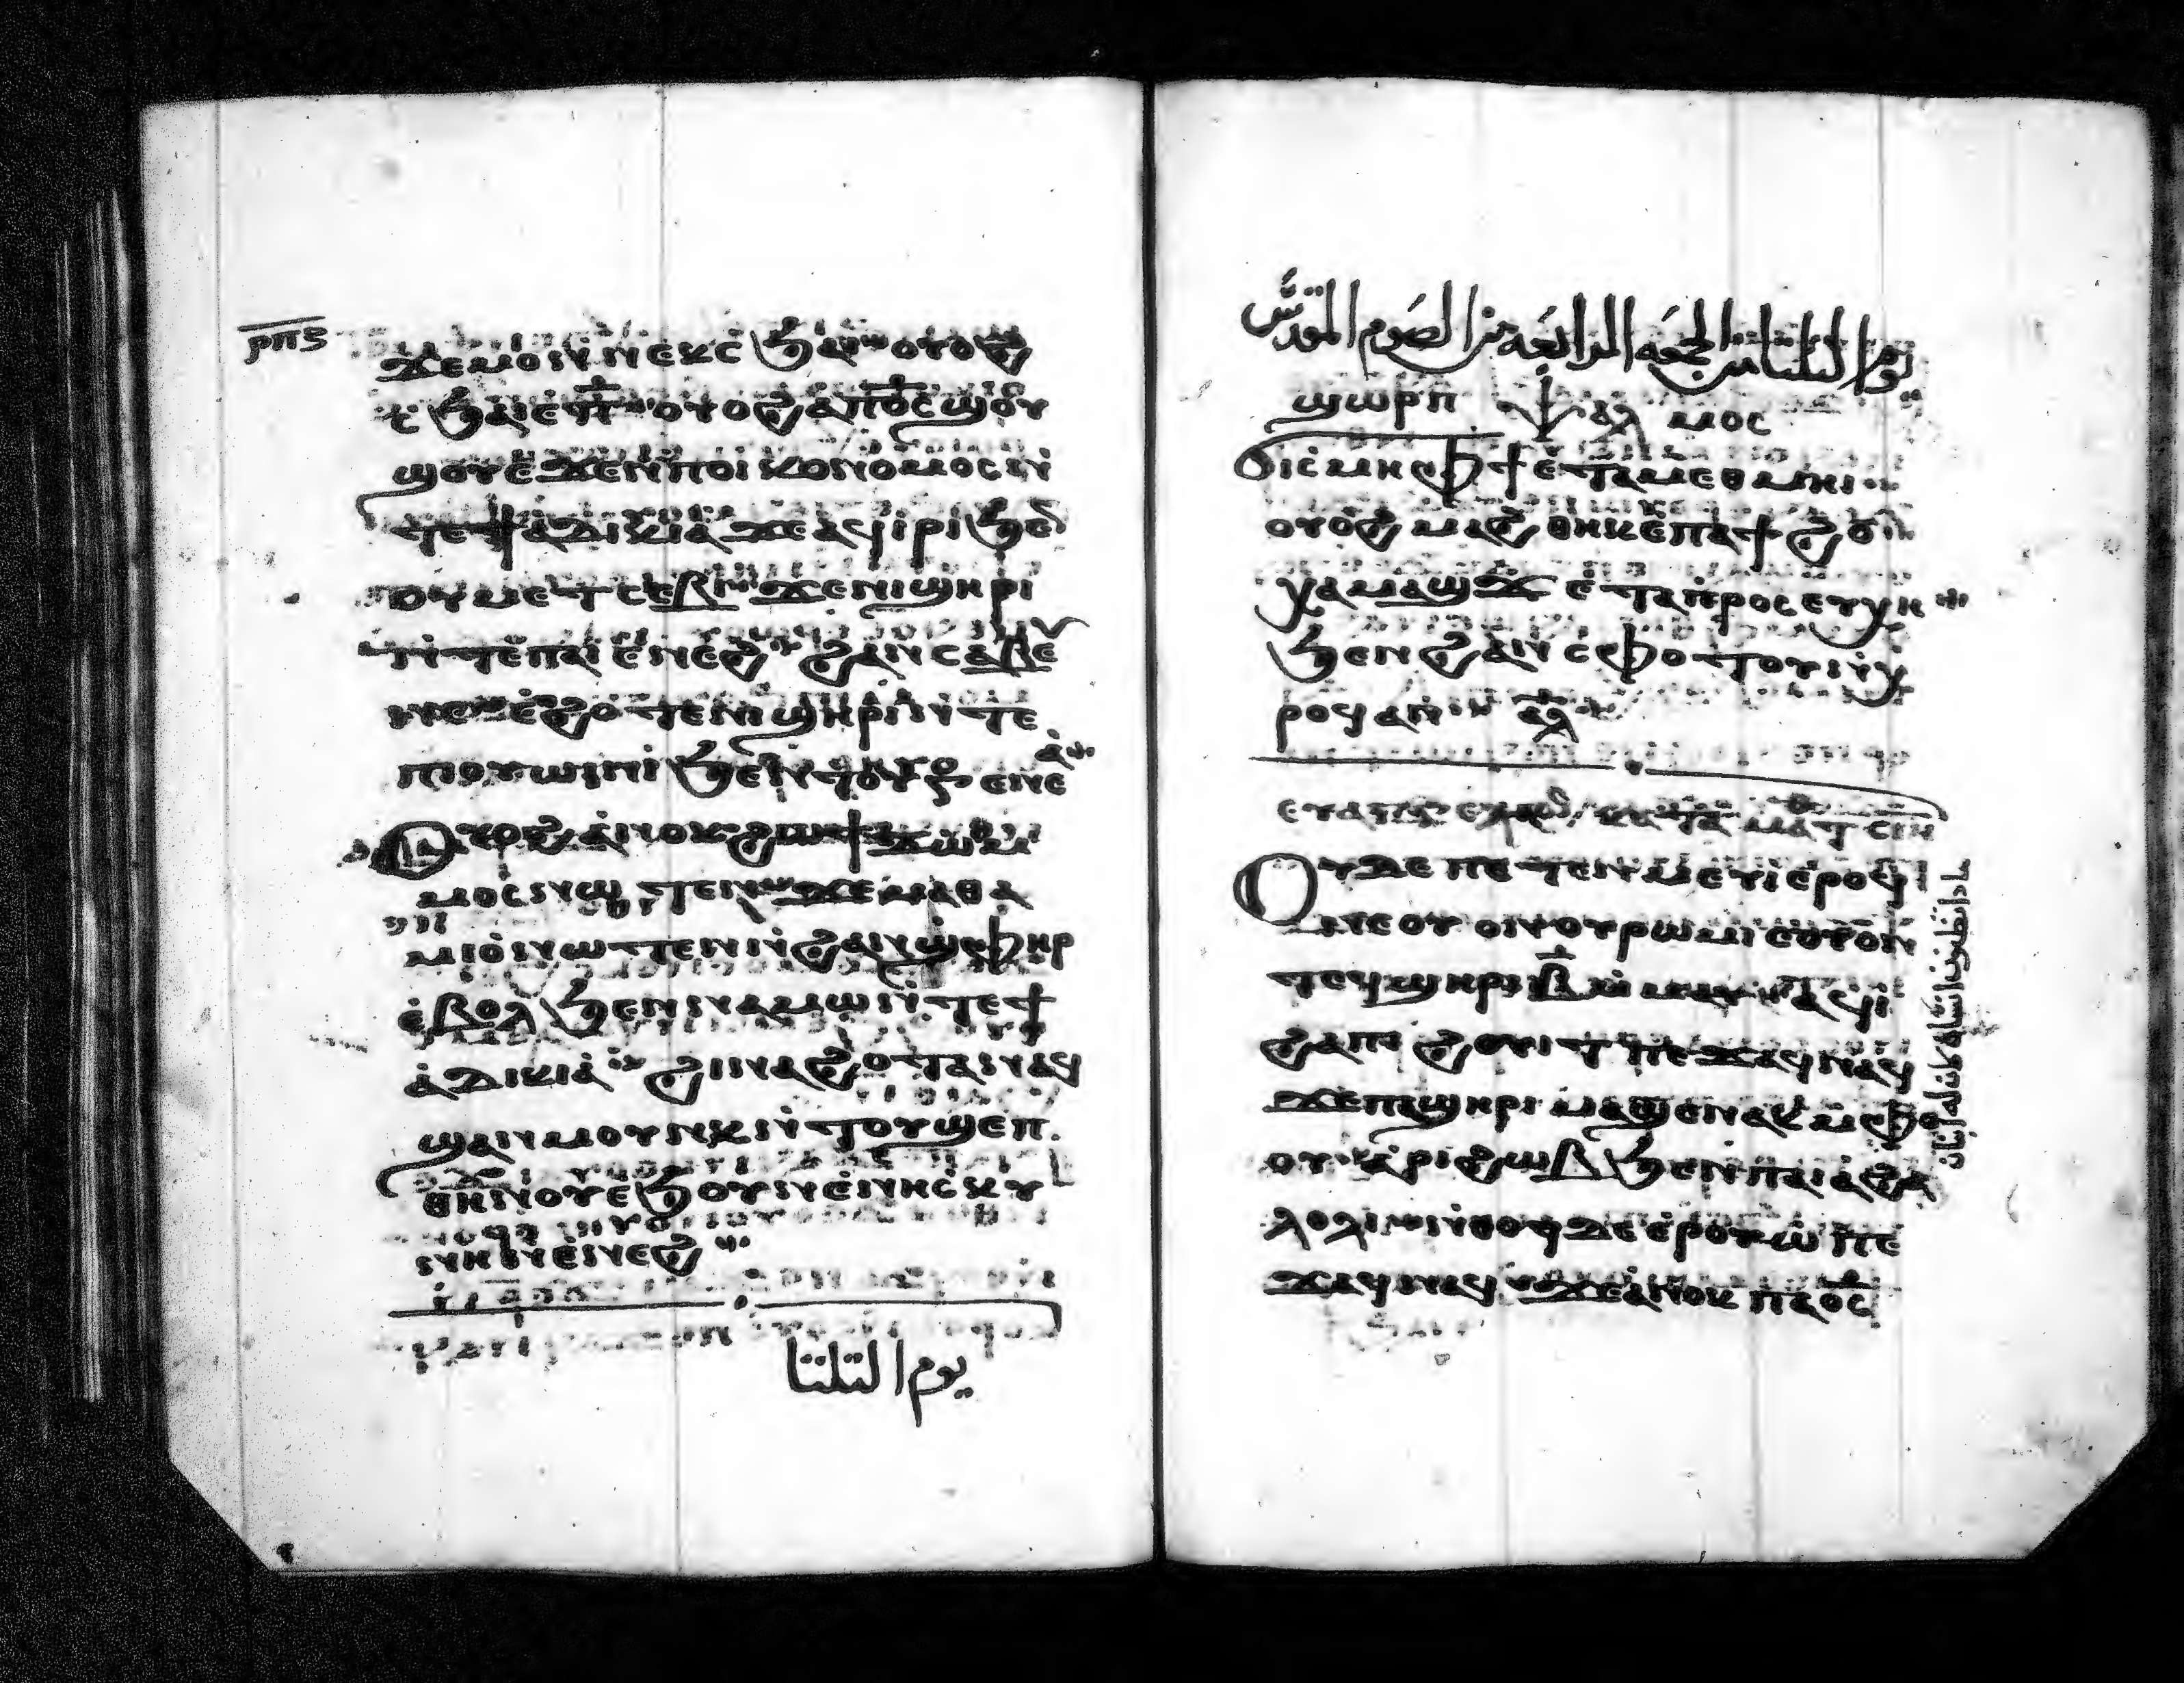 ⲣⲡⲋ
ϫⲉⲙⲟⲓ ⲛⲛⲉⲕⲥϧⲁⲓ ⲟⲩⲟϩ
ϧⲁⲓ ⲉⲡ̅ ⲟⲩⲟϩ ⲁⲡⲟ̅ⲥ̅ ϣⲟⲩ
ϣⲟⲩ ⲉϫⲉⲛ ⲡⲓⲟⲓⲕⲟⲛⲟⲙⲟⲥ ⲛ̀
ⲧⲉϯⲁⲇⲓⲕⲓⲁ ϫⲉ ⲁϥⲓⲣⲓ ϧⲉⲛ
ⲟⲩⲙⲉⲧⲥⲉⲃⲏ ϫⲉ ⲛⲓϣⲏⲣⲓ
ⲛ̀ⲧⲉ ⲡⲁⲓ ⲉⲛⲉϩ ϩⲁⲛⲥⲁⲃⲉ
ⲛⲉ ⲉϩⲟⲧⲉ ⲛⲓϣⲏⲣⲓ ⲛ̀ⲧⲉ
ⲡⲓⲟⲩⲱⲓⲛⲓ ϧⲉⲛ ⲧⲟⲩ ⲅⲉⲛⲉⲁ̀
Ⲟⲩⲟϩ ⲁⲛⲟⲕ ϩⲱ ϯϫⲱⲙ
ⲙⲟⲥ ⲛⲱⲧⲉⲛ ϫⲉ ⲙⲁⲑⲁ
ⲙⲓⲟ̀ ⲛⲱⲧⲉⲛ ⲛ̀ϩⲁⲛϣⲫⲏⲣ
ⲉ̀ⲃⲟⲗ ϧⲉⲛ ⲙⲁⲙⲱⲛⲁ ⲛ̀ⲧⲉϯ
ⲁ̀ⲇⲓⲕⲓⲁ̀ ϩⲓⲛⲁ ϩⲟⲧⲁⲛ ⲁϥ
ϣⲁⲛⲙⲟⲩⲛⲕ ⲛ̀ⲧⲟⲩϣⲉⲡ
ⲑⲏⲛⲟⲩ ⲉϧⲟⲩⲛ ⲉ̀ⲛⲓⲥⲕⲩ
ⲛⲏ ⲛ̀ⲉ̀ⲛⲉϩ
يوم التلتا
يوم التلتا من الجمعه الرابعه من الصوم المقدس
ϣⲱⲣⲡ ⲯⲁⲗⲙⲟⲥ
Ϭⲓⲥⲙⲏ ⲫϯ ⲉⲧⲁⲙⲉⲑⲙⲏⲓ
ⲟⲩⲟϩ ⲙⲁϩⲑⲏⲕ ⲉⲡⲁϯϩⲟ
ϭⲁⲙⲁϣϫ ⲉ̀ⲧⲁⲡⲣⲟⲥⲉⲩⲭⲏ
ϧⲉⲛ ϩⲁⲛⲥⲫⲟⲧⲟⲩ ⲛ̀ⲭ
ⲣⲟϥ ⲁⲛ ⲁⲗ
ⲉⲩⲁⲅⲅ ⲕⲁⲧⲁ ⲙⲁⲧ ⲥⲓⲏ
Ⲟⲩ ⲇⲉ ⲡⲉⲧⲉⲛⲙⲉⲩⲓ ⲉ̀ⲣⲟϥ
ⲛⲉ ⲟⲩⲟⲛ ⲟⲩⲣⲱⲙⲓ ⲉⲟⲩⲟⲛ
ⲧⲉϥ ϣⲏⲣⲓ ⲃ̅ ⲙ̀ⲙⲁⲩ ⲁϥⲓ̀
ϩⲁ ⲡⲓϩⲟⲩⲓⲧ ⲡⲉϫⲁϥ ⲛⲁϥ
ϫⲉ ⲡⲁϣⲏⲣⲓ ⲙⲁϣⲉⲛⲁⲕ ⲙ̀ⲫⲟ
ⲟⲩ ⲁⲣⲓϩⲱⲃ ϧⲉⲛ ⲡⲁⲓⲁϩⲁ
ⲗⲟⲗⲓ ⲛ̀ⲑⲟϥ ⲇⲉ ⲉ̀ⲣⲟⲩⲱ̀ ⲡⲉ
ϫⲁϥ ⲛⲁϥ ϫⲉ ⲁⲛⲟⲕ ⲡⲁⲟ̅ⲥ̅
مادا تظنون انسان كان له ابنان